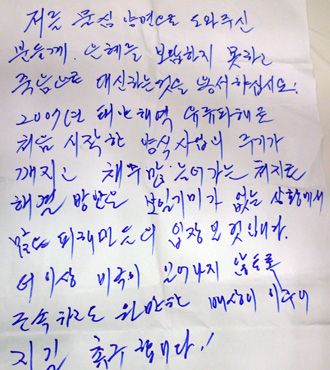 저를 물심 양면으로 도와주신
분들께. 은혜를 보답하지 못하고
죽음으로 대신하는것을 용서하십시오!
2007년 태안해역 유류피해로
처음 시작한 양식사업의 주기가
깨지고 채무만 늘어가는 처지로
해결 방안은 보일기미가 없는 상황에서
많은 피해민들의 입장도 헛입니다.
더 이상 비극이 일어나지 않도록
조속하고도 원만한 배상이 이루어
지길 촉구 합니다!